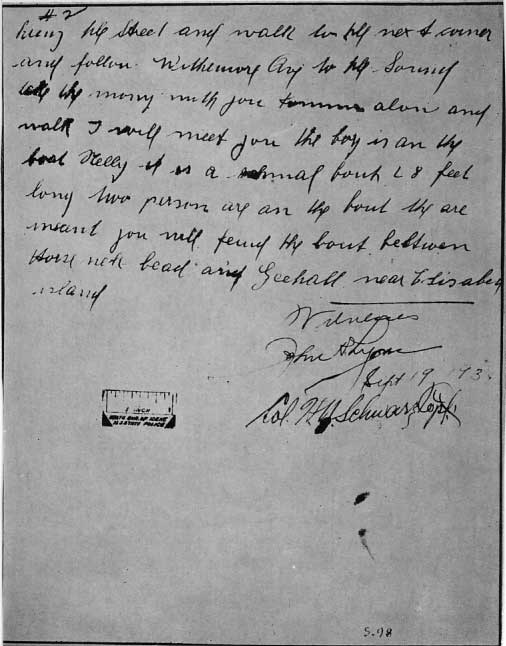 #2
the street and walk to the next corner
and follow Withemore Ave to the Sound
the mony with you alon and
walk I will meet you the boy is an the
boad Nelly it is a schmal bout 28 feet
long two person are an the bout the are
you will find the bout bettwen
Horse neck beach and Geehall near Elisabeth
island
Witnesses
Sept 19 193
Col. H. N. Schwarzkopf
1 INCH
N.J. STATE POLICE
S-98